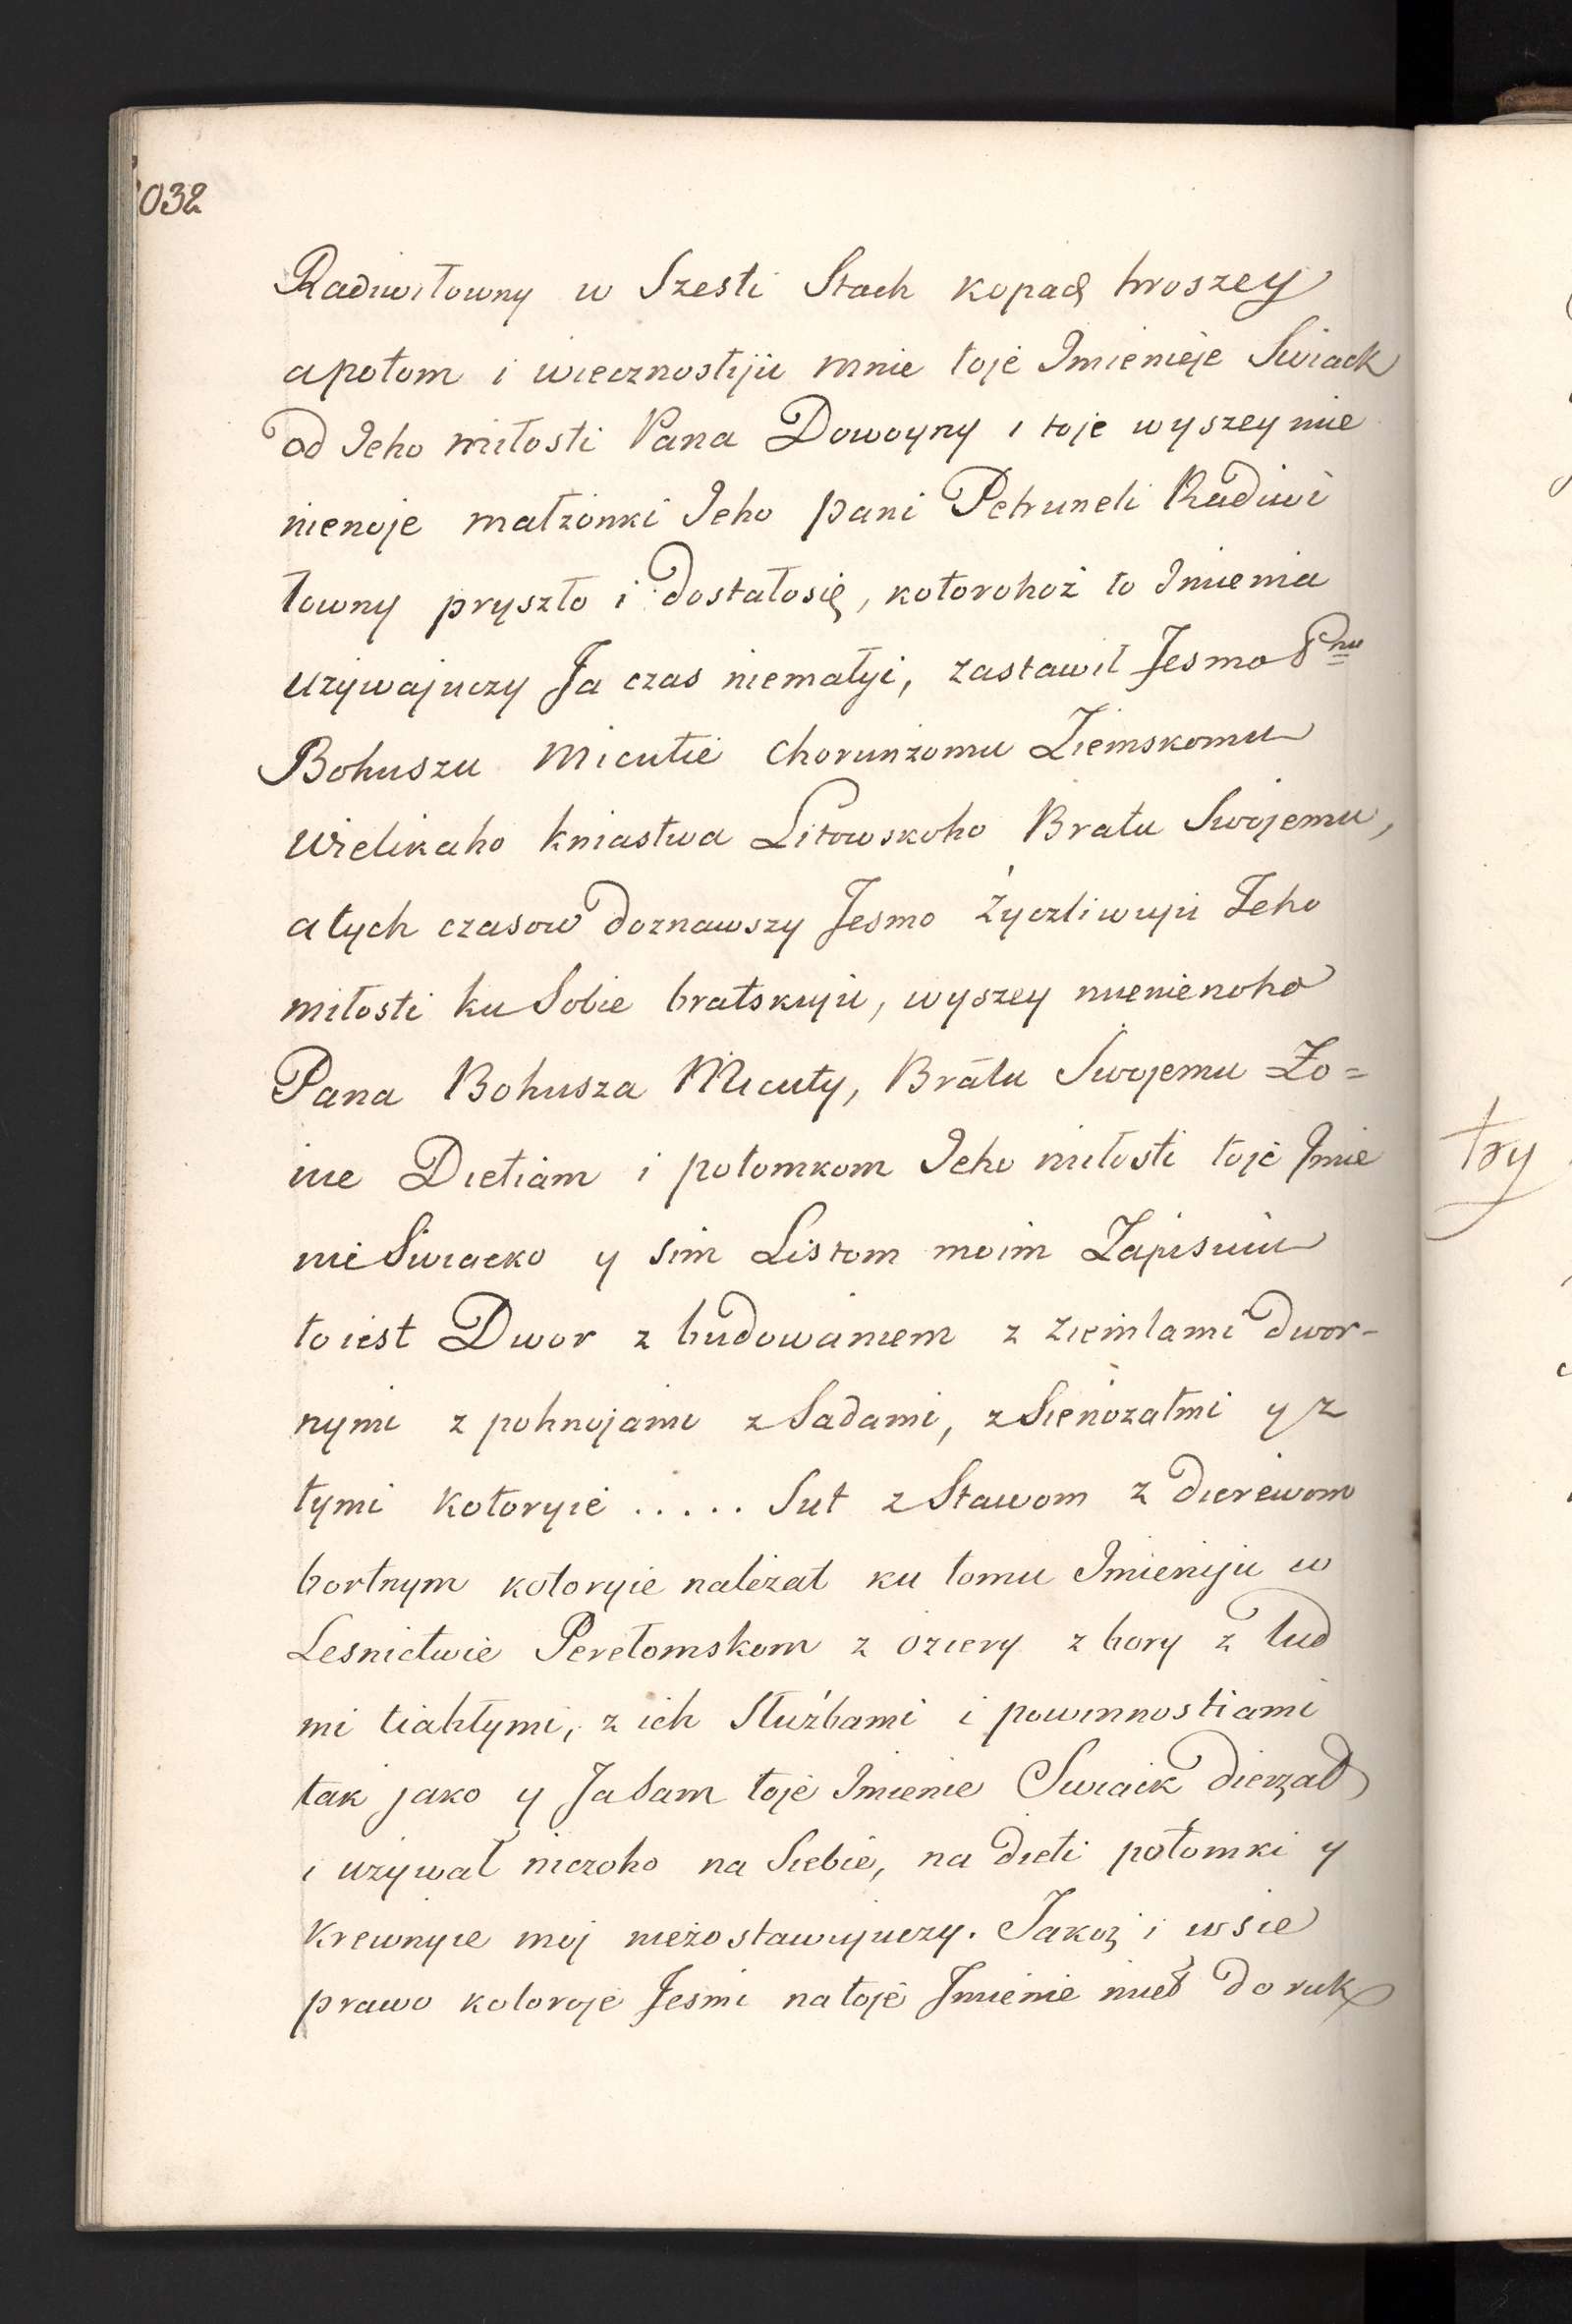 1032
Radiwiłowny w Szesti Stach kopach hroszey
apotom i wiecznostiju mnie toje Imienieje Swiack
od Jeho miłosti Pana Dowoyny i toje wyszey mie
nienoje małżonki Jeho pani Petruneli Radiwi
łowny pryszło i dostałosię, kotorohoż to Imienia
używajuczy Ja czas niemałyi, zastawił Jesmo Pnu
Bohuszu Micutie Chorunżomu Ziemskomu
Wielikaho kniastwa Litowskoho Bratu Swojemu,
a tych czasow doznawszy Jesmo Życzliwuju Jeho
miłosti ku Sobie bratskuju, wyszey mienienoho
Pana Bohusza Micuty, Bratu Swojemu Żo=
nie Dietiam i potomkom Jeho miłosti toje Imie
nie Swiacko y sim Listom moim Zapisuiu
to iest Dwor z budowaniem z ziemlami dwor-
nymi z pohnojami z Sadami, z Sienożatmi y z
tymi kotoryie ..... Sut z Stawom z dierewom
bortnym kotoryie należat ku tomu Imieniju w
Lesnictwie Perełomskom z oziery z bory z lud
mi tiahłymi, z ich Służbami i powinnostiami
tak jako y Ja Sam toje Imienie Swiack dierżał
i używał niczoho na Siebie, na dieti potomki y
krewnyie moj nieżostawujuczy. Jakoż i wsie
prawo kotoroje Jesmi na toje Imienie mieł do ruk
try